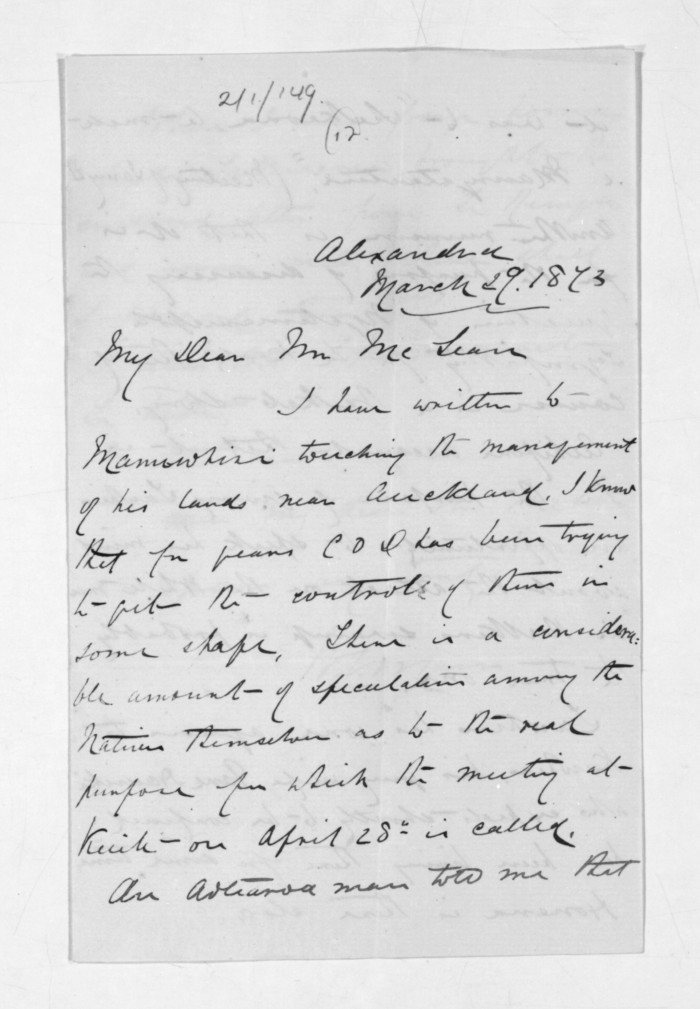 2/1/149.
(12
Alexandra
March 29. 1873
My Dear Mr McLean
I have written to
Manuwhiri touching the management
of his lands near Auckland. I know
that for years C O D has been trying
to get the control of them in
some shape, There is a considera=
ble amount of speculation among the
Natives themselves as to the real
purpose for which the meeting at
Kuiti on April 28th is called.
An Aotearoa man told me that